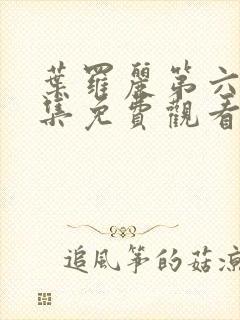 葉羅麗第六
集免費觀看
追風箏的菇涼